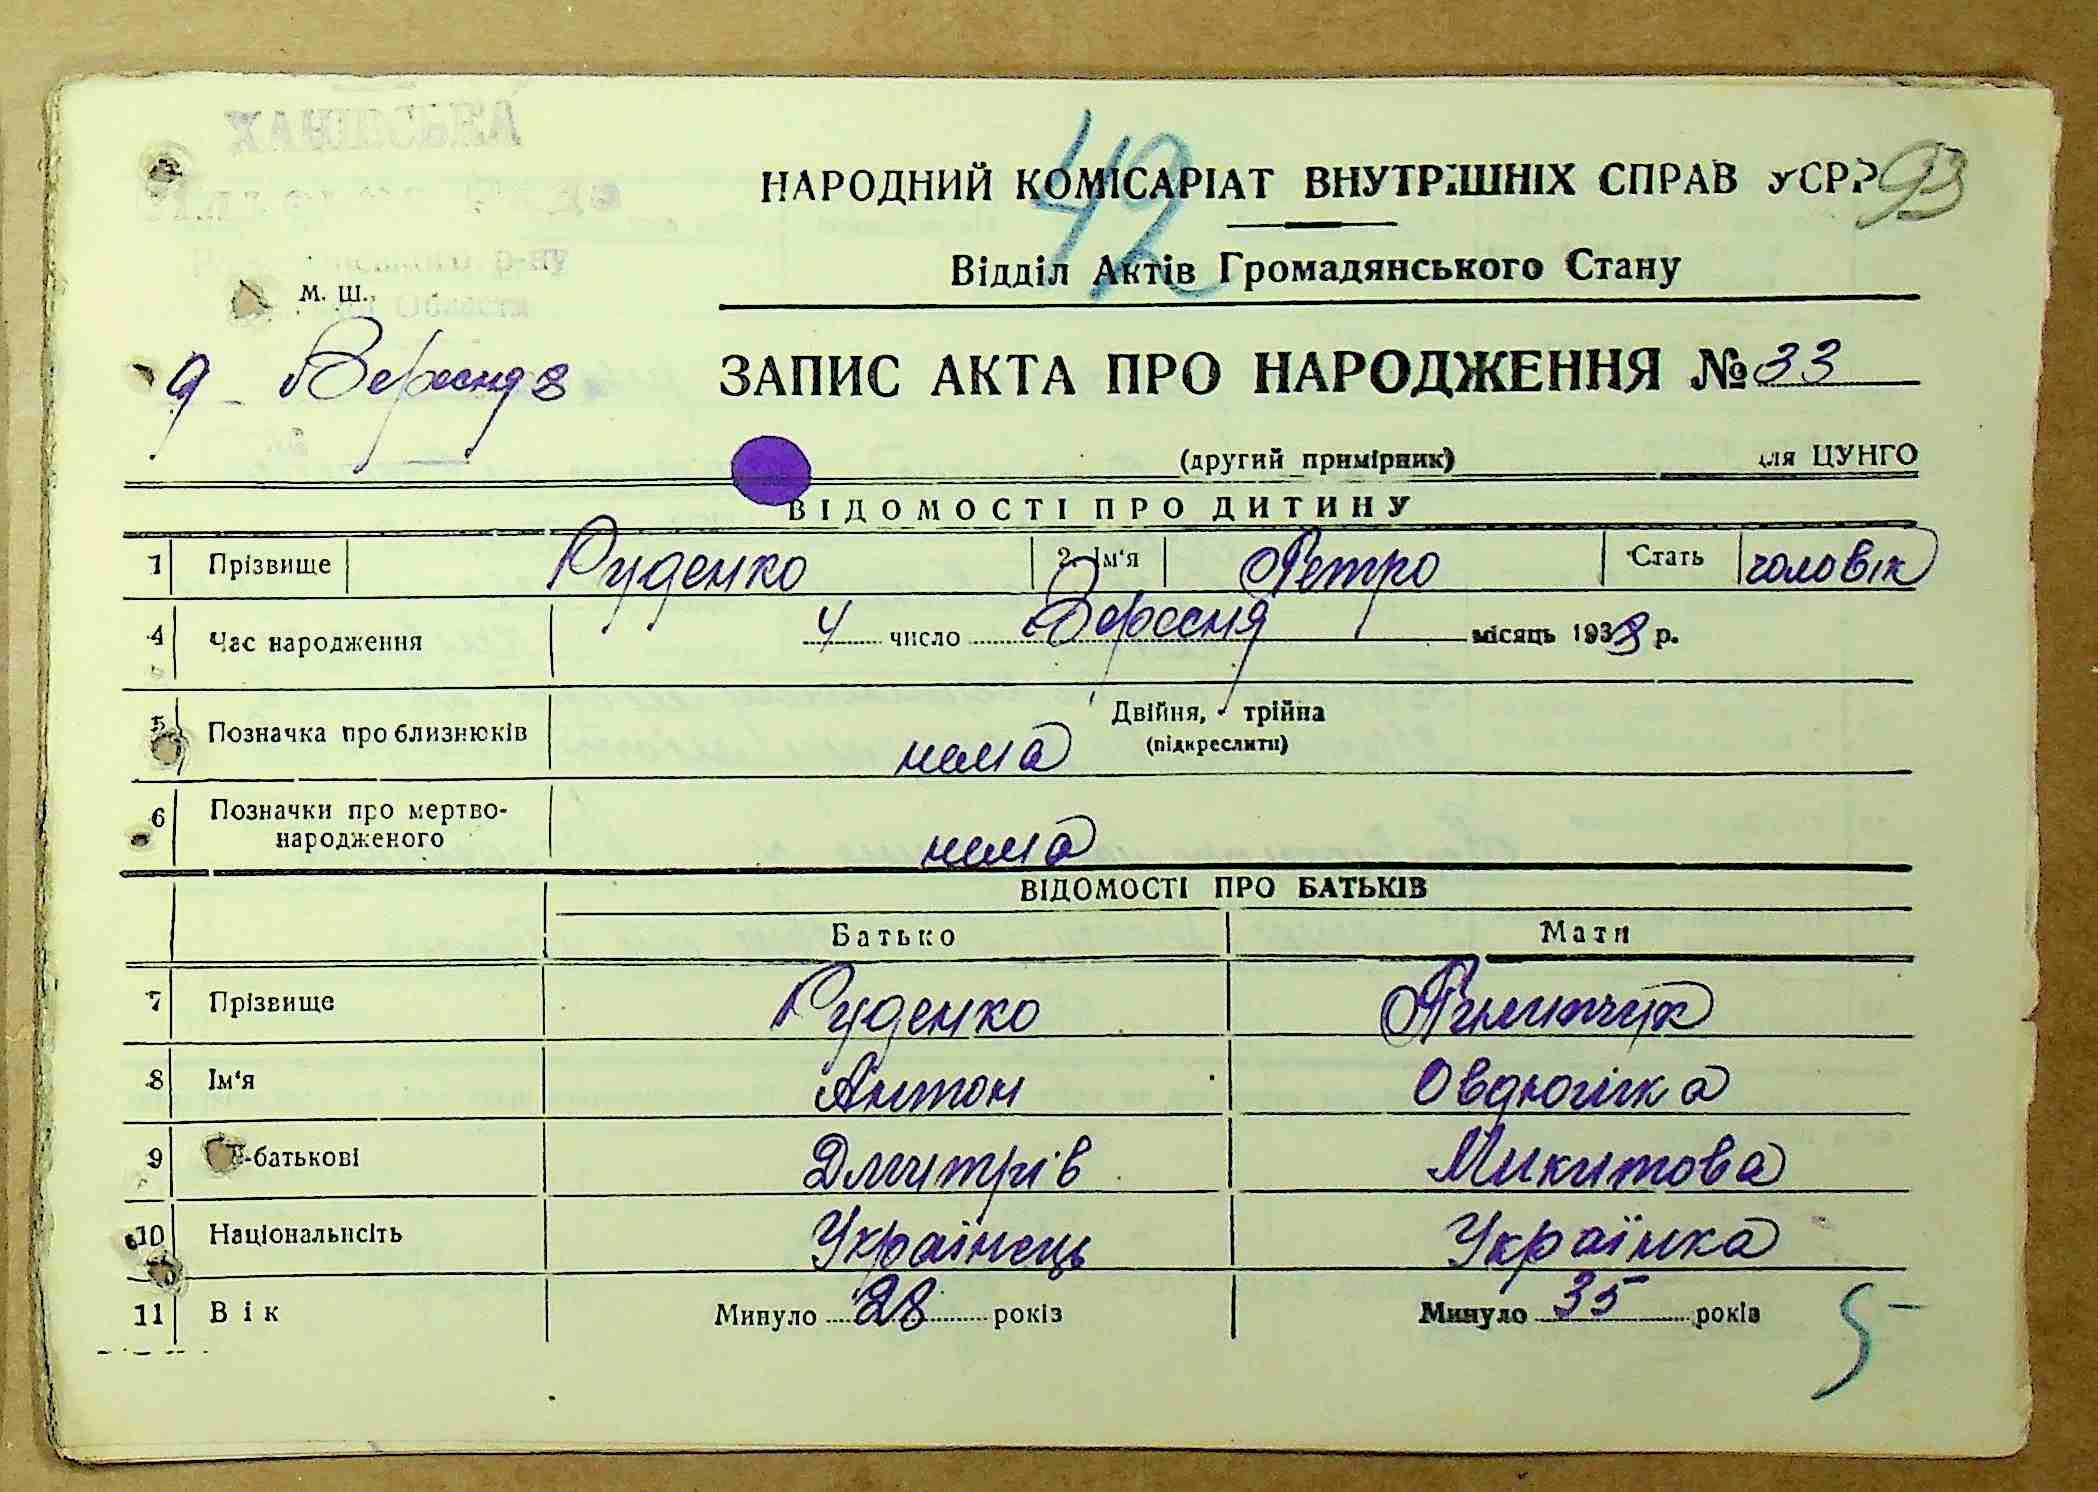 42
НАРОДНИЙ КОМІСАРІАТ ВНУТРІШНІХ СПРАВ УСРР 93
Відділ Актів Громадянського Стану
М. Ш.
9 Вересня 8
ЗАПИС АКТА ПРО НАРОДЖЕННЯ № 33
(другий примірник) для ЦУНГО
ВІДОМОСТІ ПРО ДИТИНУ
1 Прізвище Руденко 2. Ім'я Петро Стать чоловік
4 Час народження 4 число Вересня місяць 1938 р.
5 Позначка про близнюків Двійня, трійня
(підкреслити)
нема
6 Позначки про мертво-
народженого нема
ВІДОМОСТІ ПРО БАТЬКІВ
Батько Мати
7 Прізвище Руденко
8 Ім'я Антон
9 По-батькові Дмитрів Микитова
10 Національність Українець Українка
11 Вік Минуло 28 років Минуло 35 років
5